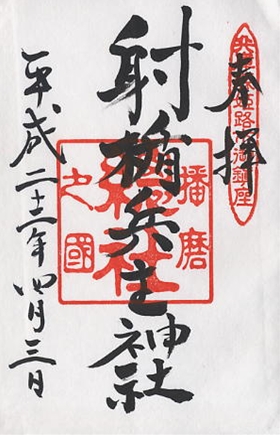 奉拝
射楯兵主神社
平成二十三年四月三日
播磨
総社
之國